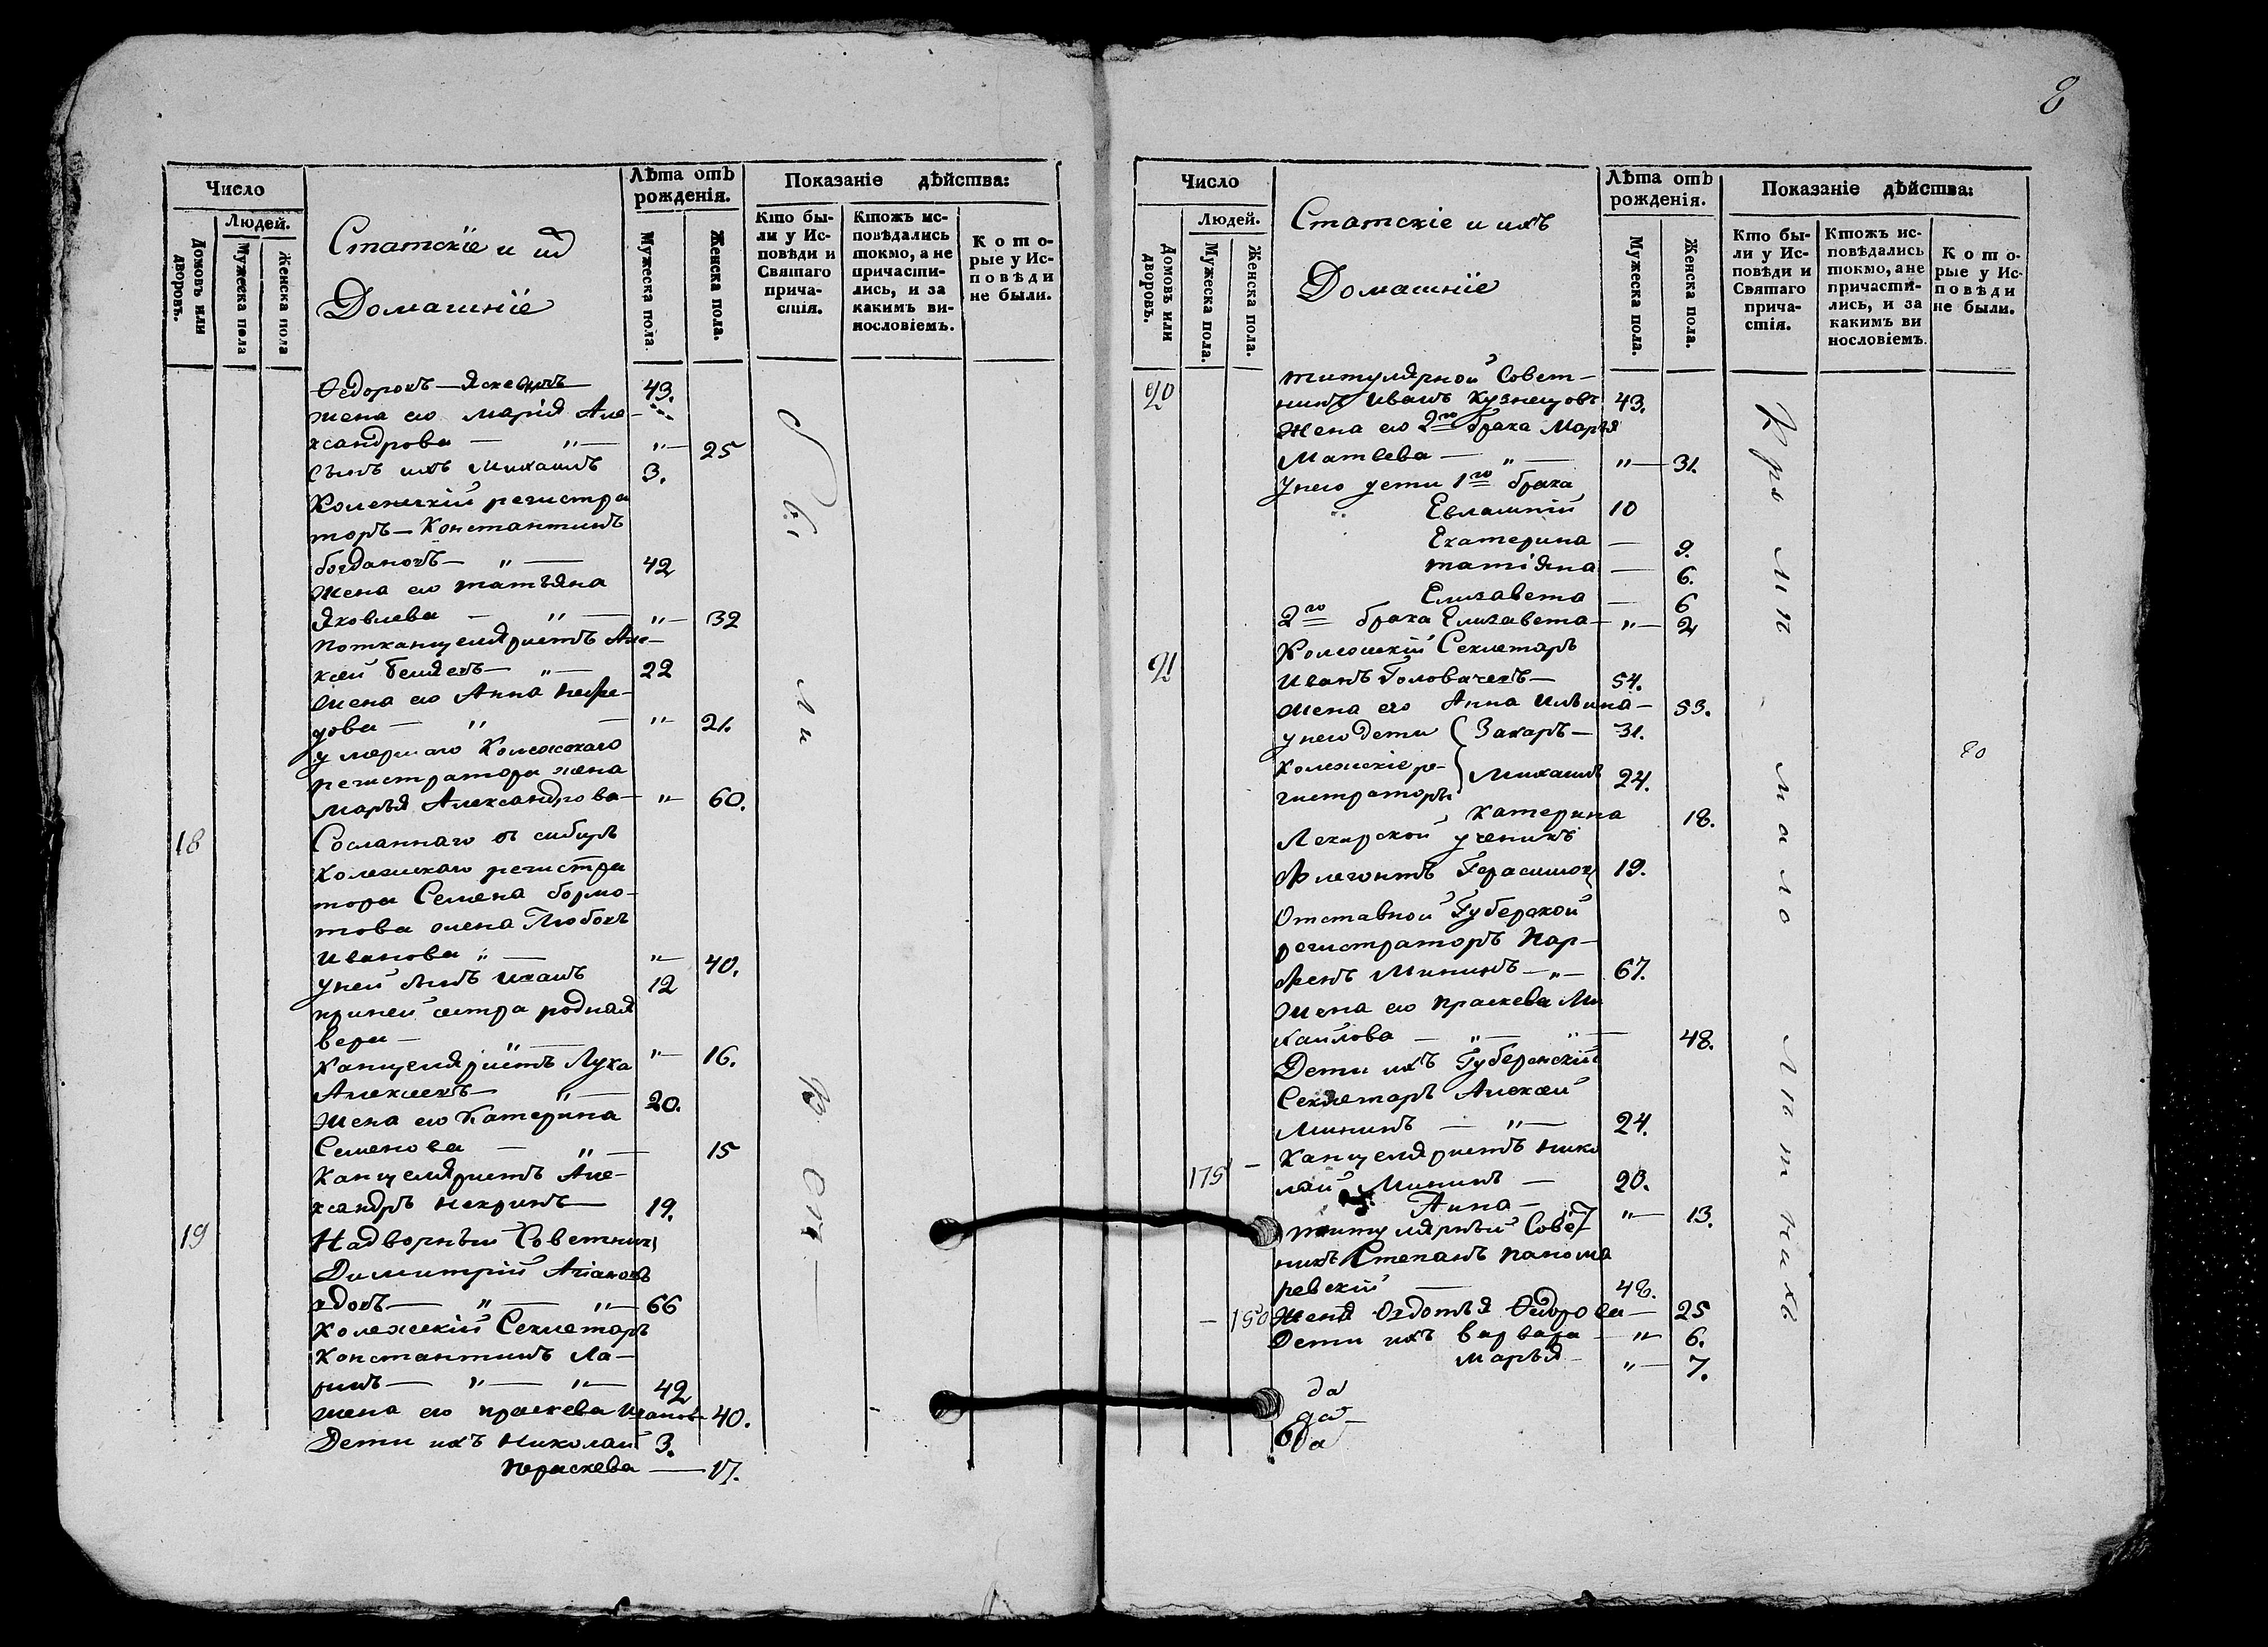 8
Число
Людей.
Домовъ или дворовъ.
Мужеска пола
Женска пола
Статскіе и
Домашніе
Лѣта отъ рожденія.
Мужеска пола.
Женска пола.
Показаніе дѣйства:
Кто бы-
ли у Ис-
повѣди и
Святаго
прича-
стія.
Ктожъ ис-
повѣдались
токмо, а не
причасти-
лись, и за
какимъ ви-
нословіемъ.
К о т о-
рые у Ис-
п о в ѣ д и
не были.
43.
жена ево марія Але-
ксандрова — " — " — 25
Сынъ ихъ Михаилъ 3.
Колежскій регистра
торъ — Константинъ
богдановъ — " — 42
Жена ево татъяна
Яковлева — " — " — 32
Потканцеляристъ Але-
ксей Беляевъ — " — 22
Жена ево Анна Нефе-
дова — " — " — 21.
умершаго Колежскаго
регистратора жена
Марья Александрова — " — 60.
18 Сосланнаго въ сибирь
Колежскаго регистра
тора Семена бормо-
това жена Любовь
Иванова " — " — 40.
уней сынъ Иванъ 12
приней сестра родная
вера — " — " — 16.
Канцеляристъ Лука
Алексеевъ — " — 20.
Жена ево Катерина
Семенова — " — 15
Канцеляристъ Але-
ксандръ — 19.
19 Надворный Советникъ
Димитрий
— " — " — 66
Колежскій Секретарь
Константинъ Ла-
ринъ — " — " — 42
жена ево праскева Иванов 40.
Дети ихъ Николай 3.
праскева — 17.
Число
Людей.
Домовъ или дворовъ.
Мужеска пола.
Женска пола.
Статскіе и ихъ
Домашніе
Лѣта отъ рожденія.
Мужеска пола.
Женска пола.
Показаніе дѣйства:
Кто бы-
ли у Ис-
повѣди и
Святаго
прича-
стія.
Ктожъ ис-
повѣдались
токмо, а не
причасти-
лись, и за
какимъ ви
нословіемъ.
К о т о-
рые у Ис-
п о в ѣ д и
не были.
20 титулярной Совет-
никъ Иванъ Кузнецовъ 43.
Жена ево 2го брака Марья
Матвева — " — " — 31.
унего дети 1го брака
Евлампій 10
Екатерина — 9.
татіяна — 6.
Елизавета — 6
2го брака Елизавета — " — 2
Колежскій Секлетарь
21 Иванъ Головачевъ — 54.
жена его Анна Ильина — 53.
унего дети Захаръ — 31.
Колежскіе ре-
гистраторы Михаилъ 24.
Катерина 18.
Лекарской ученикъ
Флегонтъ Герасимов 19.
Отставной Губерской
регистраторъ Пар-
фенъ Мининъ — " — 67.
Жена ево праскева Ми
хайлова — " — " — 48.
Дети ихъ Губернскій
Секлетарь Алексей
Мининъ — " — 24.
Канцеляристъ Нико
175 — лай Мининъ — 20.
Анна — " — 13.
титулярный Совет
никъ Степанъ панома
ревскій — 48.
— 150 Жена Овдотья Федорова — 25
Дети ихъ варвара — " — 6.
марья — " — 7.
да
да